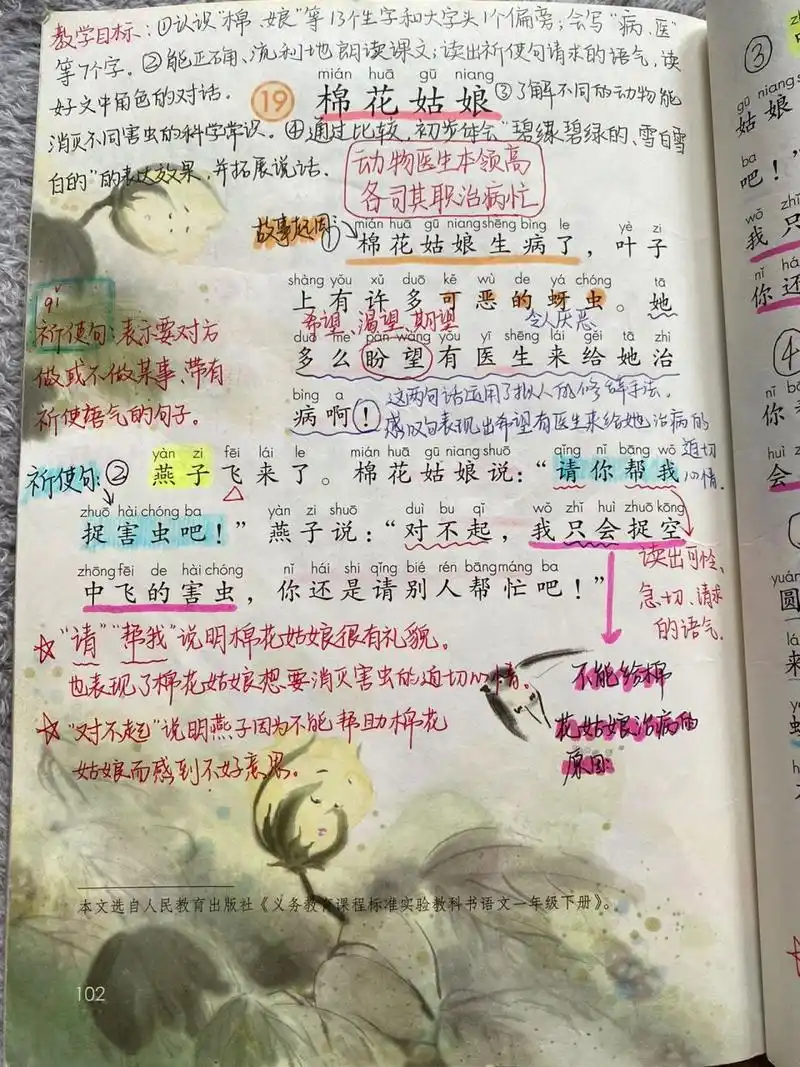 教学目标:①认识"棉、娘"等13个生字和大字头1个偏旁;会写"病、医"
等7个字。②能正确、流利地朗读课文;读出祈使句请求的语气,读
好文中角色的对话。
mián huā gū niang
19 棉花姑娘
③了解不同的动物能
消灭不同害虫的科学常识。④通过比较,初步体会"碧绿碧绿的、雪白雪
白的"的表达效果,并拓展说话。
动物医生本领高
各司其职治病忙
故事起因
①
mián huā gū niang shēng bìng le yè zi
棉花姑娘生病了,叶子
shàng yǒu xǔ duō kě wù de yá chóng tā
上有许多可恶的蚜虫。她
希望、渴望、期望
令人厌恶
duō me pàn wàng yǒu yī shēng lái gěi tā zhì
多么盼望有医生来给她治
bìng a
病啊!
这两句话运用了拟人的修辞手法。
感叹句表现出希望有医生来给她治病的
迫切
心情.
qǐ
祈使句:表示要对方
做或不做某事、带有
祈使语气的句子。
祈使句:②
yàn zi fēi lái le mián huā gū niang shuō qǐng nǐ bāng wǒ
燕子飞来了。棉花姑娘说:“请你帮我
zhuō hài chóng ba yàn zi shuō duì bu qǐ wǒ zhǐ huì zhuō kōng
捉害虫吧!”燕子说:“对不起,我只会捉空
zhōng fēi de hài chóng nǐ hái shi qǐng bié rén bāng máng ba
中飞的害虫,你还是请别人帮忙吧!”
读出可怜、
急切、请求
的语气.
☆"请""帮我"说明棉花姑娘很有礼貌。
也表现了棉花姑娘想要消灭害虫的迫切心情。
☆"对不起"说明燕子因为不能帮助棉花
姑娘而感到不好意思。
不能给棉
花姑娘治病的
原因:
本文选自人民教育出版社《义务教育课程标准实验教科书语文一年级下册》。
102
③
gū niang
姑娘
ba
吧!”
wǒ
我只
nǐ
你还
④
nǐ
你
huì
会
圆
lá
来